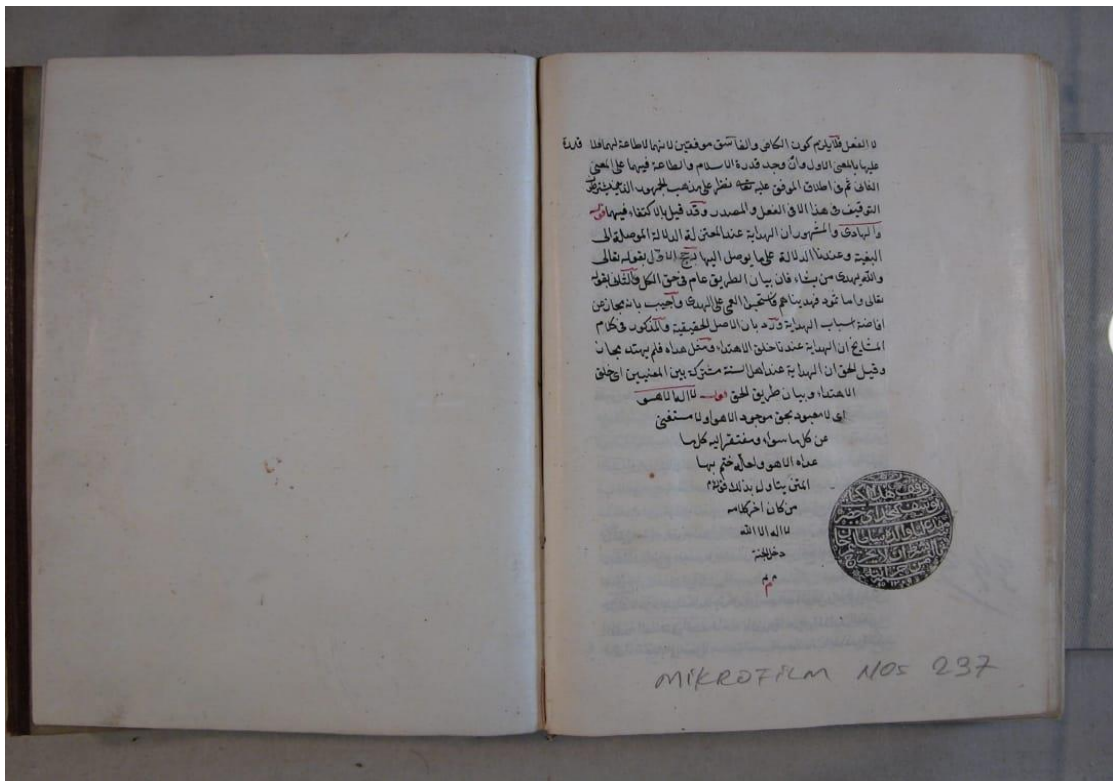 لا الفعل فلا يلزم كون الكافر والفاسق موفقين لانهما لا طاعة لهما فلا قدرة
عليها بالمعنى الاول وان وجد قدرة الاسلام والطاعة فيهما على المعنى
الثانى ثم فى اطلاق الموفق عليه تعالى نظر على مذهب الجمهور
التوقيف فى هذا الا فى الفعل والمصدر وقد قيل بالاكتفاء فيهما قوله
والهادى والمشهور ان الهداية عند المعتزلة الدلالة الموصلة الى
البغية وعندنا الدلالة على ما يوصل اليها الاول بقوله تعالى
والله يهدى من يشاء فان بيان الطريق عام فى حق الكل والثانى بقوله
تعالى واما ثمود فهديناهم فاستحبوا العمى على الهدى واجيب بانه مجاز عن
افاضة اسباب الهداية ورد بان الاصل الحقيقية والمذكور فى كلام
المشايخ ان الهداية عندنا خلق الاهتداء ومثل هداه فلم يهتد مجاز
وقيل الحق ان الهداية عند اهل السنة مشتركة بين المعنيين اى خلق
الاهتداء وبيان طريق الحق قوله لا اله الا هو
اى لا معبود بحق موجود الا هو او لا مستغنى
عن كل ما سواه ومفتقر اليه كل ما
عداه الا هو ولعله ختم بها
المتن بذلك
من كان اخر كلامه
لا اله الا الله
دخل الجنة
م م م
وقف هذا
MİKROFİLM NOs 237